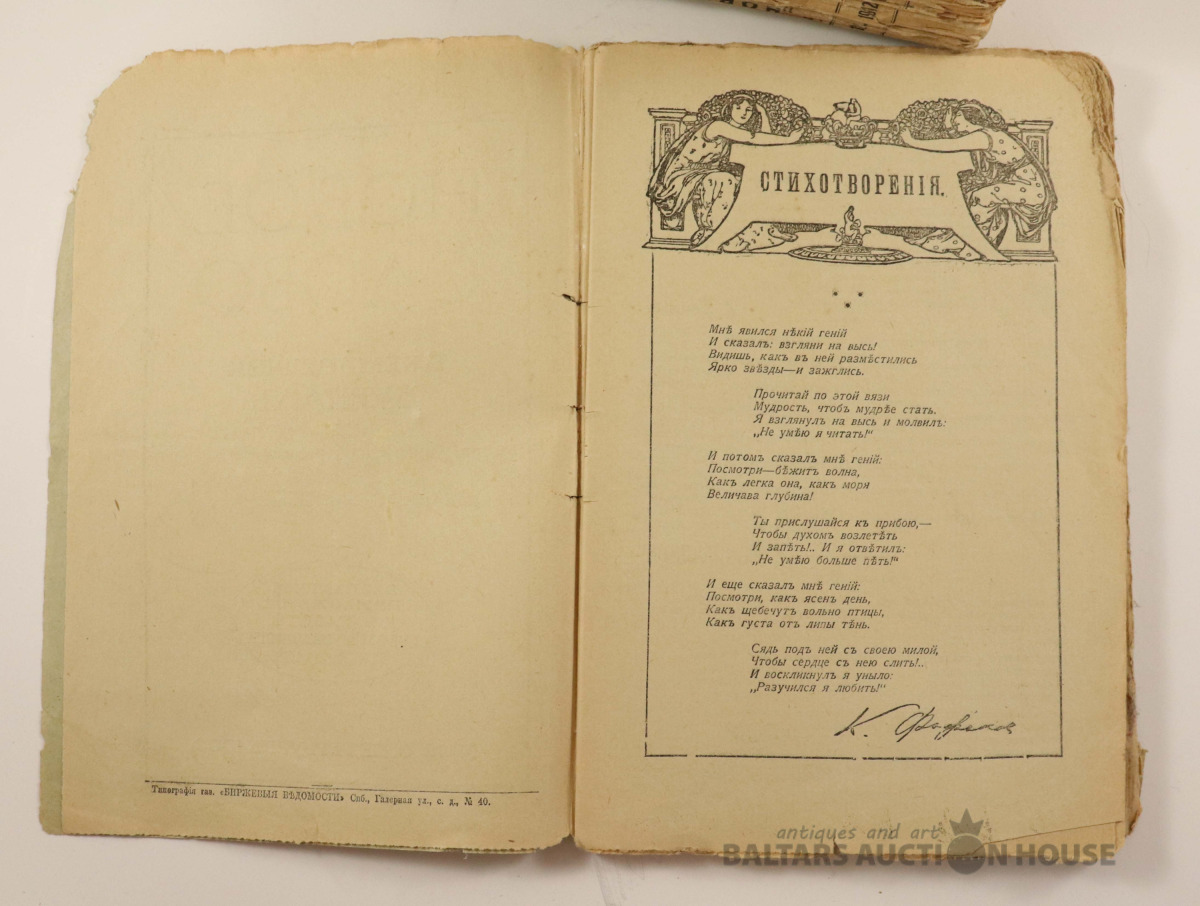 1912
Типографія газ. «БИРЖЕВЫЯ ВѢДОМОСТИ» Спб., Галерная ул., с. д., № 40.
СТИХОТВОРЕНІЯ.
Мнѣ явился нѣкій геній
И сказалъ: взгляни на высь!
Видишь, какъ въ ней размѣстились
Ярко звѣзды—и зажглись.
Прочитай по этой вязи
Мудрость, чтобъ мудрѣе стать.
Я взглянулъ на высь и молвилъ:
„Не умѣю я читать!“
И потомъ сказалъ мнѣ геній:
Посмотри—бѣжитъ волна,
Какъ легка она, какъ моря
Величава глубина!
Ты прислушайся къ прибою,—
Чтобы духомъ возлетѣть
И запѣть!.. И я отвѣтилъ:
„Не умѣю больше пѣть!“
И еще сказалъ мнѣ геній:
Посмотри, какъ ясенъ день,
Какъ щебечутъ вольно птицы,
Какъ густа отъ липы тѣнь.
Сядь подъ ней съ своею милой,
Чтобы сердце съ нею слить!..
И воскликнулъ я уныло:
„Разучился я любить!“
К. Фофанов
antiques and art
BALTARS AUCTION HOUSE